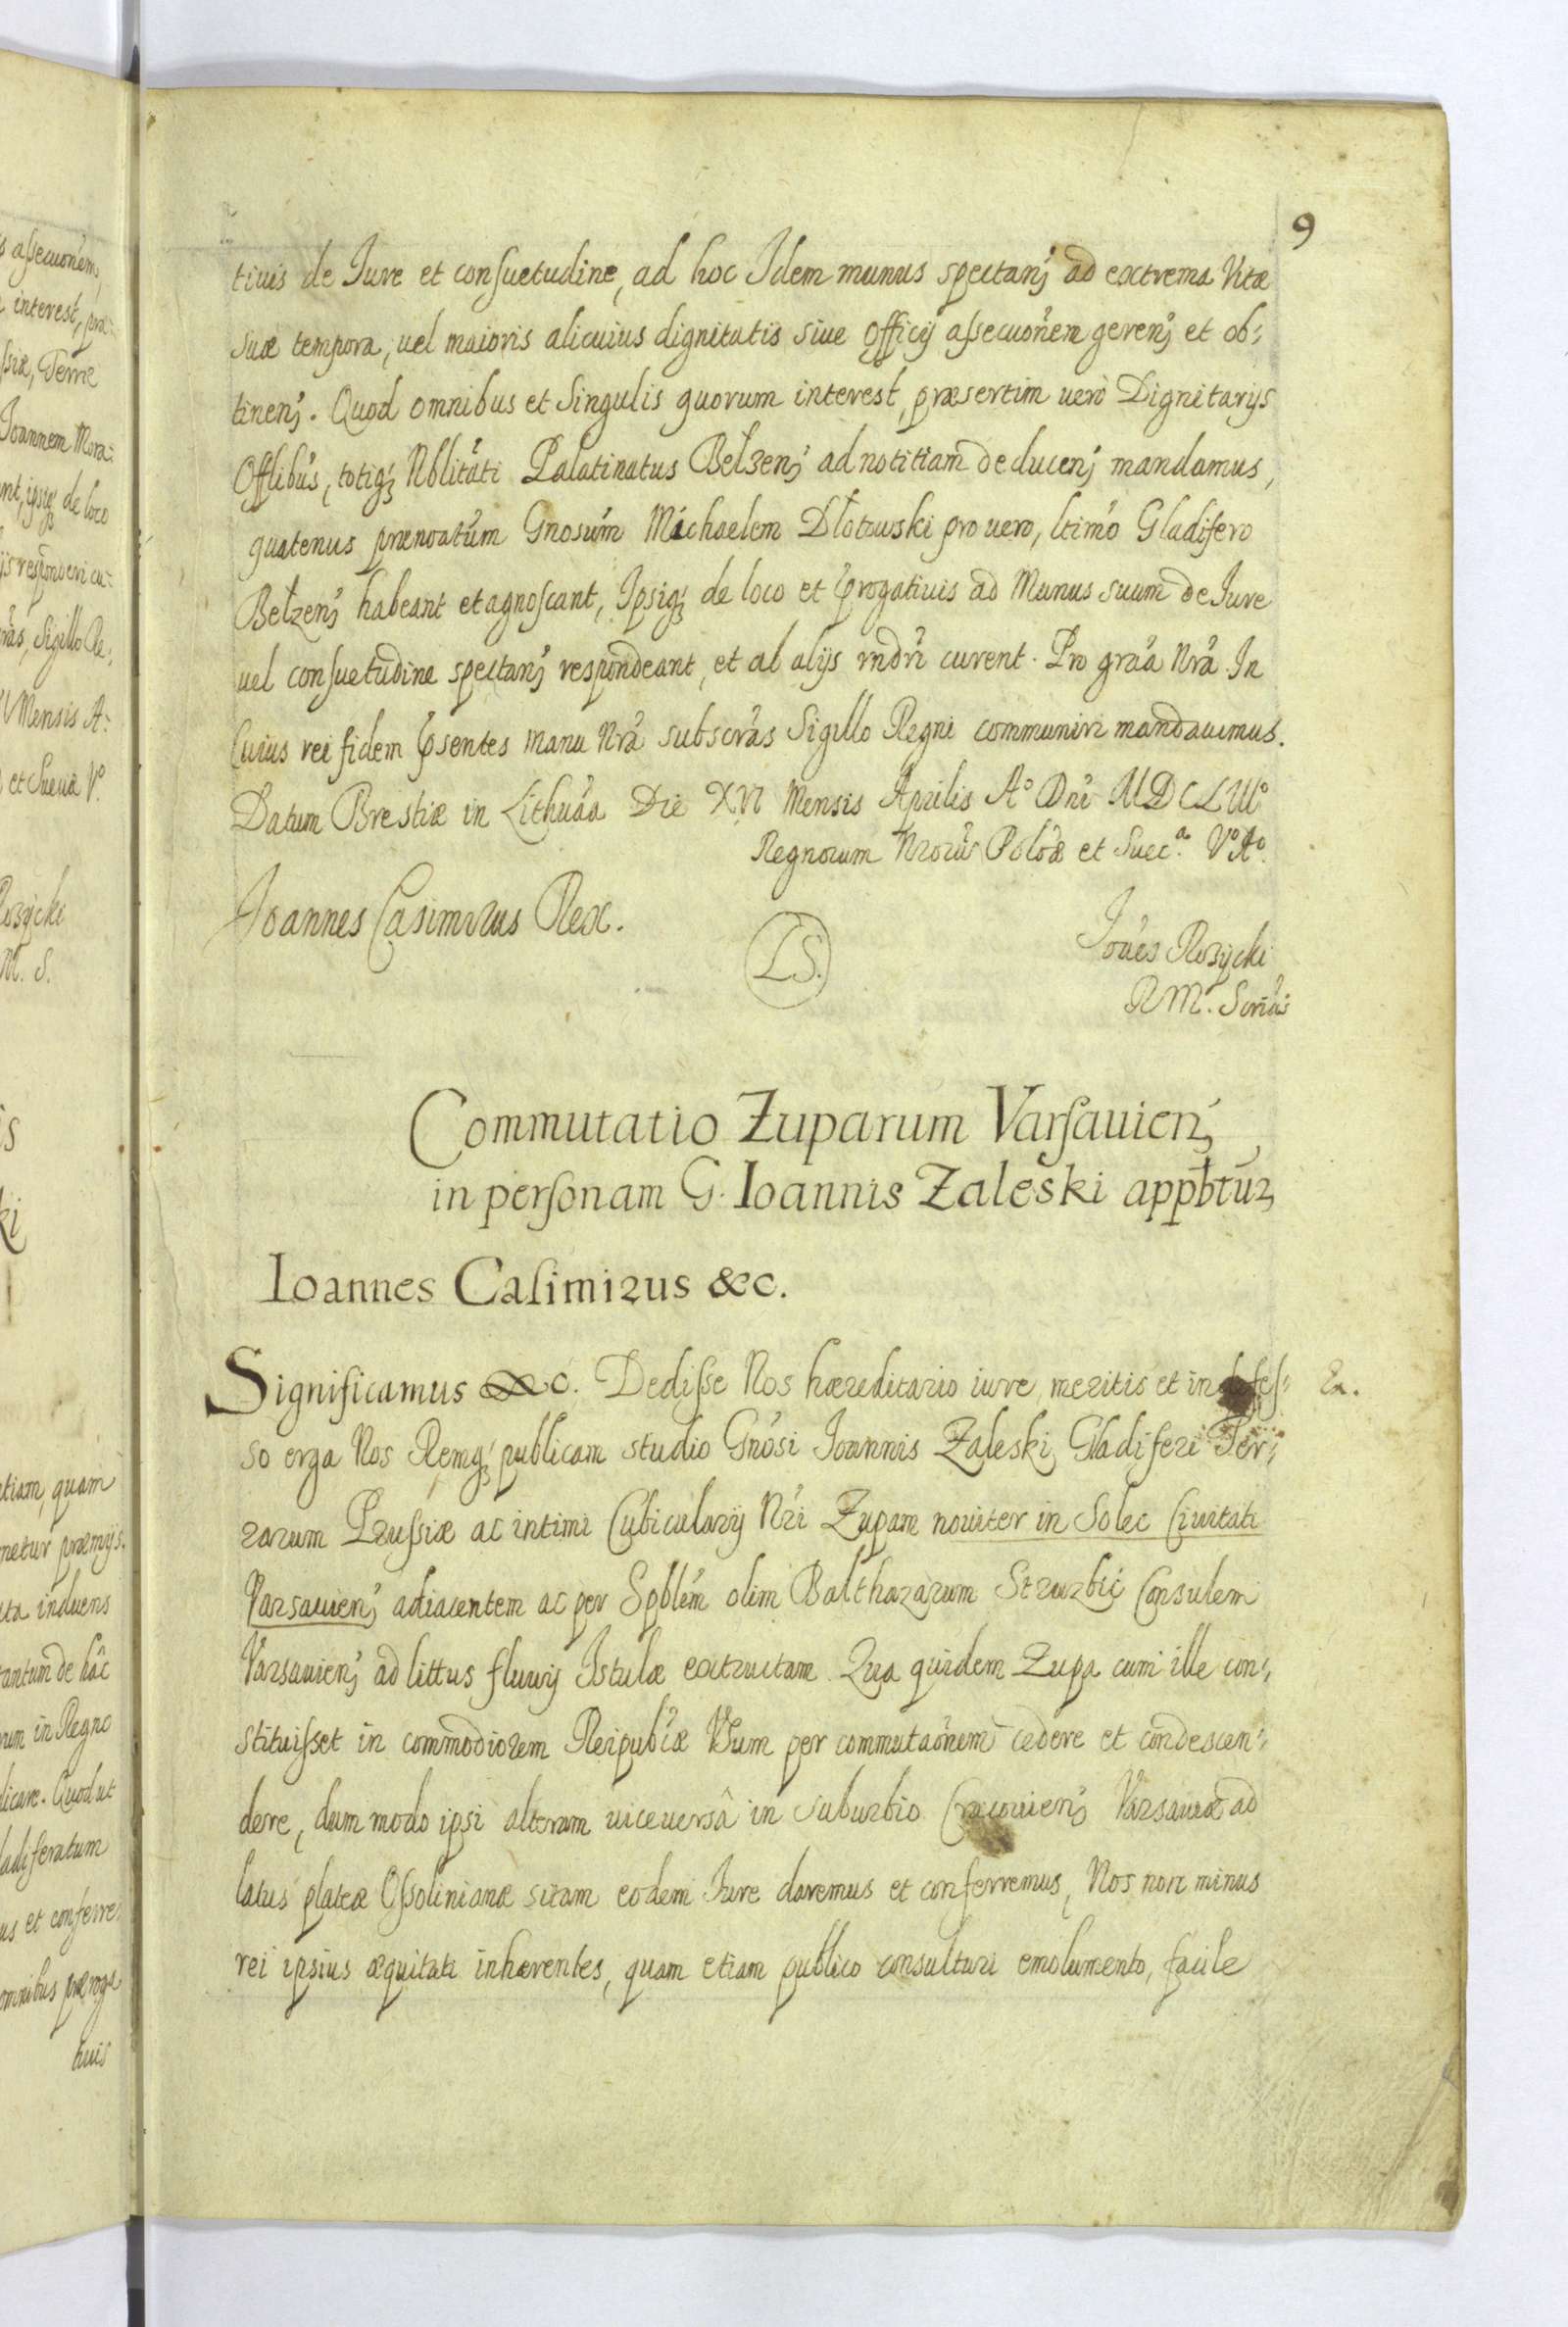 9
tiuis de Iure et consuetudine, ad hoc Idem munus spectanʒ ad extrema Vitæ
suæ tempora, uel maioris alicuius dignitatis siue Officij assecuoñem gerenʒ et ob:
tinenʒ. Quod omnibus et Singulis quorum interest, præsertim uerò Dignitarijs
Offlibus, totiqʒ Nblitati Palatinatus Bełzenʒ ad notitiam deducenʒ mandamus,
quatenus prænoatum Gnosum Michaelem Dłotowski pro uero, ltimo Gladifero
Bełzenʒ habeant et agnoscant, Ipsiqʒ de loco et progatiuis ad Munus suum de Iure
uel consuetudine spectanʒ respondeant, et ab alijs rndri curent. Pro gra'a Nra'. In
Cuius rei fidem psentes manu Nra' subscras Sigillo Regni communiri mandauimus.
Datum Brestiæ in Lithua'a Die XVI Mensis Aprilis Aº Dni MDCLIIIº
Regnorum Nrorũ Polo'æ et Suec.ª Vº Aº.
Joannes Casimirus Rex.
LS.
Joa'es Rozycki
RM. Scrius
Commutatio Zuparum Varsauienʒ
in personam G. Ioannis Zaleski appbtur
Ioannes Casimirus &c.
Significamus &c. Dedisse Nos hæreditario iure, meritis et indefes:
Ex.
so erga Nos Remqʒ publicam studio Gnosi Joannis Zaleski Gladiferi Ter:
rarum Prussiæ ac intimi Cubicularij Nri Zupam nouiter in Solec Ciuitati
Varsauienʒ adiacentem ac per Spblem olim Balthazarum Strubic Consulem
Varsauienʒ ad littus fluuij Istulæ extructam. Qua quidem Zupa cum ille con:
stituisset in commodiorem Reipub'æ Vsum per commutaoñem cedere et condescen:
dere, dum modo ipsi alteram uiceuersâ in suburbio Cracouienʒ Varsauiæ ad
latus plateæ Ossolinianæ sitam eodem Iure daremus et conferremus, Nos non minus
rei ipsius æquitati inhærentes, quam etiam publico consulturi emolumento, facile